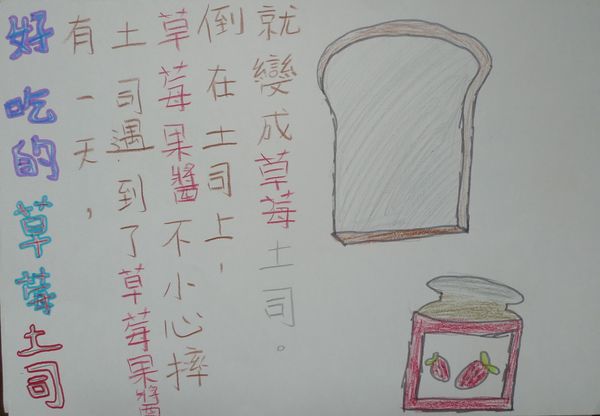 好吃的草莓土司
有一天，
土司遇到了草莓果醬
草莓果醬不小心摔
倒在土司上，
就變成草莓土司。